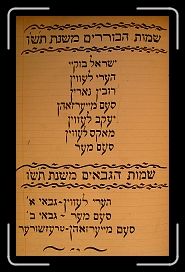 שמות הבוררים משנת תש"ו
ישראל בוקי
הערי לעווין
רובין נאריץ
סעם מייערזאהן
יעקב לעווין
מאקס לעווין
סעם מער
שמות הגבאים משנת תש"ו
הערי לעווין - גבאי א'
סעם מער - גבאי ב'
סעם מייערזאהן - טרעזשורער